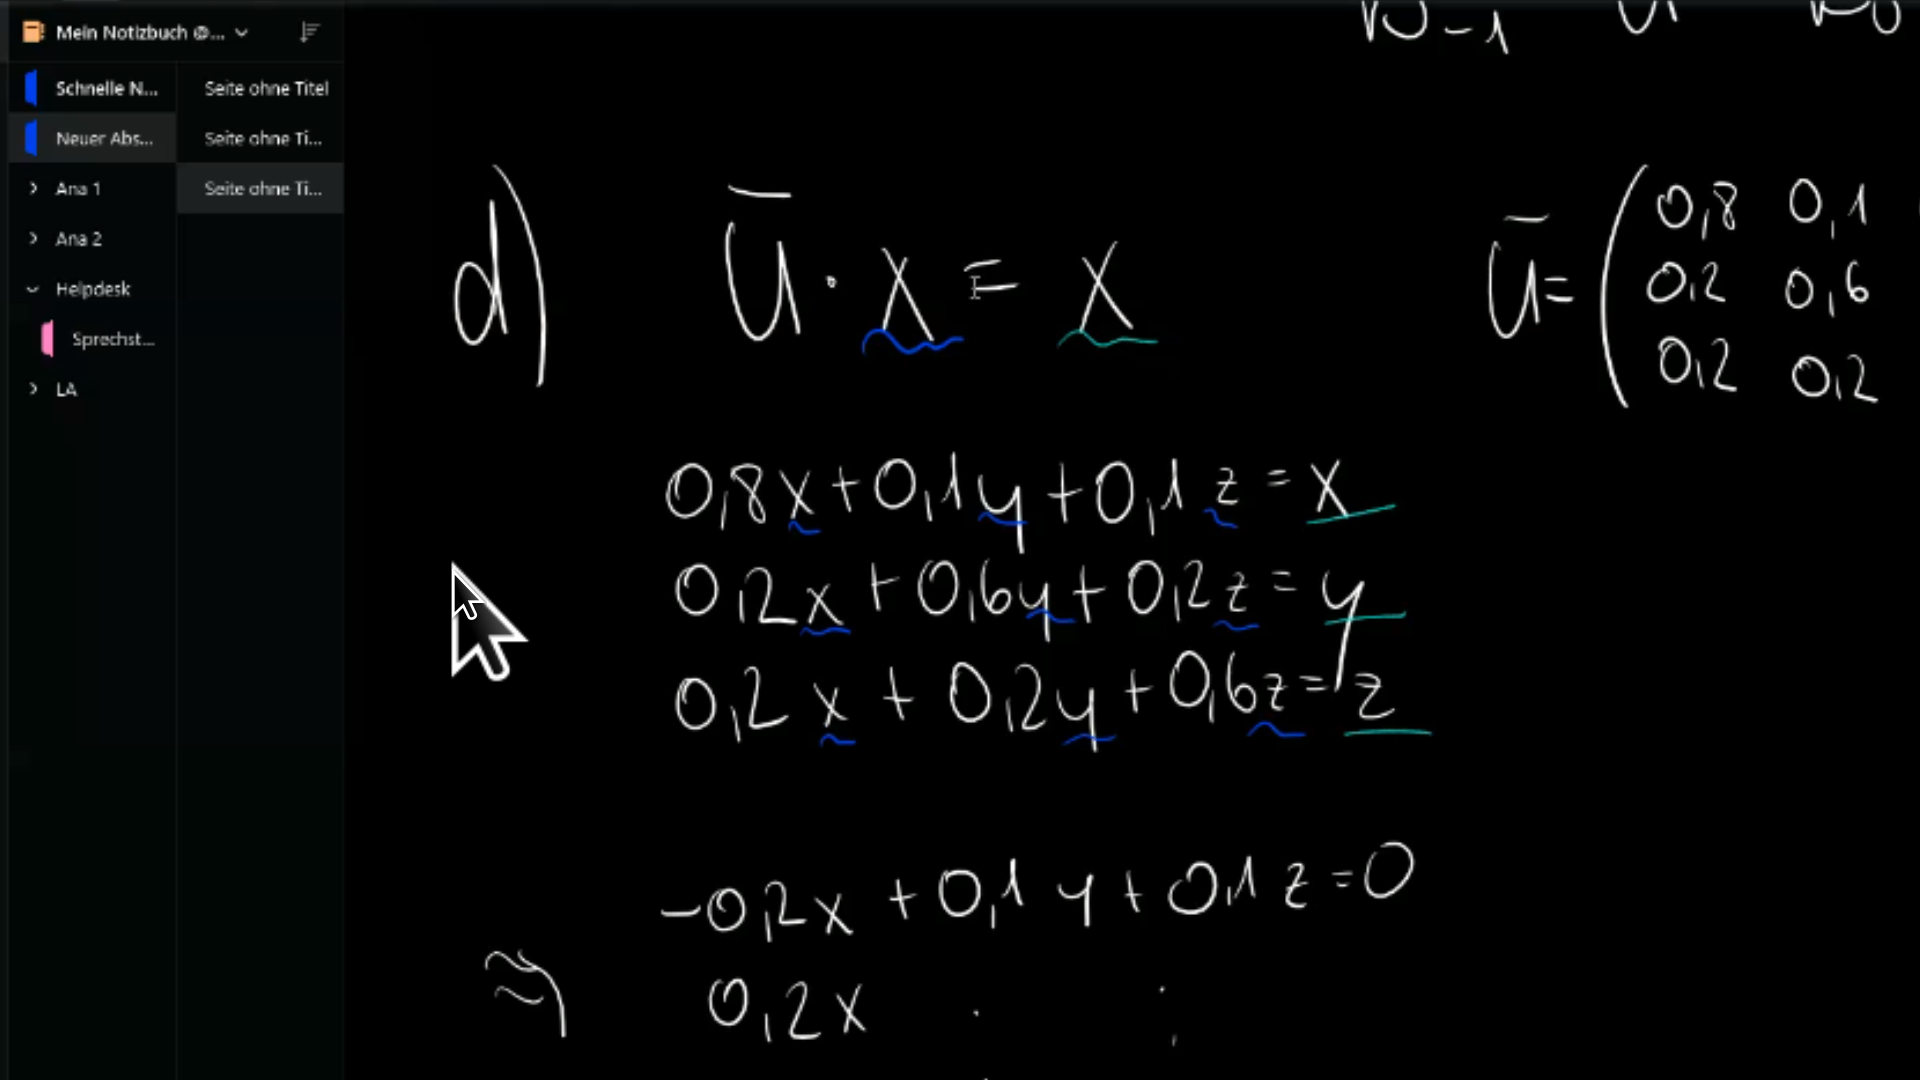 Mein Notizbuch @...
Schnelle N...
Neuer Abs...
Ana 1
Ana 2
Helpdesk
Sprechst...
LA
Seite ohne Titel
Seite ohne Ti...
Seite ohne Ti...
d) Ū · x = x
Ū = ( 0,8 0,1
0,2 0,6
0,2 0,2
0,8x + 0,1y + 0,1z = x
0,2x + 0,6y + 0,2z = y
0,2x + 0,2y + 0,6z = z
-0,2x + 0,1y + 0,1z = 0
0,2x